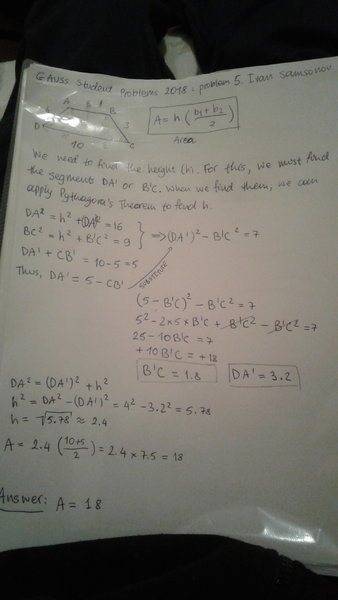 GAUSS Student Problems 2018: problem 5. Ivan Samsonov
A 5 B
4 3
D 10 C
A = h (b₁ + b₂ / 2)
Area
We need to find the height (h). For this, we must find
the segments DA' or B'C. When we find them, we can
apply Pythagora's Theorem to find h.
DA² = h² + (DA')² = 16
BC² = h² + B'C² = 9
⇒ (DA')² - B'C² = 7
DA' + CB' = 10 - 5 = 5
Thus, DA' = 5 - CB'
SUBSTITUTE
(5 - B'C)² - B'C² = 7
5² - 2×5×B'C + B'C² - B'C² = 7
25 - 10B'C = 7
+10B'C = +18
B'C = 1.8
DA' = 3.2
DA² = (DA')² + h²
h² = DA² - (DA')² = 4² - 3.2² = 5.78
h = √5.78 ≈ 2.4
A = 2.4 (10+5 / 2) = 2.4 × 7.5 = 18
Answer: A = 18